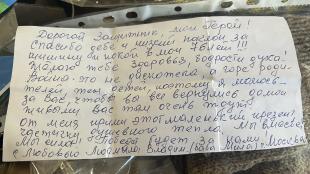 Дорогой Защитник, мой Герой!
Спасибо тебе и низкий поклон за
тишину и покой в мои 76 лет!!!
Желаю тебе здоровья, бодрости духа!
Война - это не дискотека, а горе роди-
телей, жён, детей, поэтому я молюсь
за Вас, чтобы вы вернулись домой
живыми Вас там очень трудно.
От меня прими этот маленький презент
частичку душевного тепла. Мы вместе!
Мы сила! Победа будет за нами Москва
с Любовью Людмила